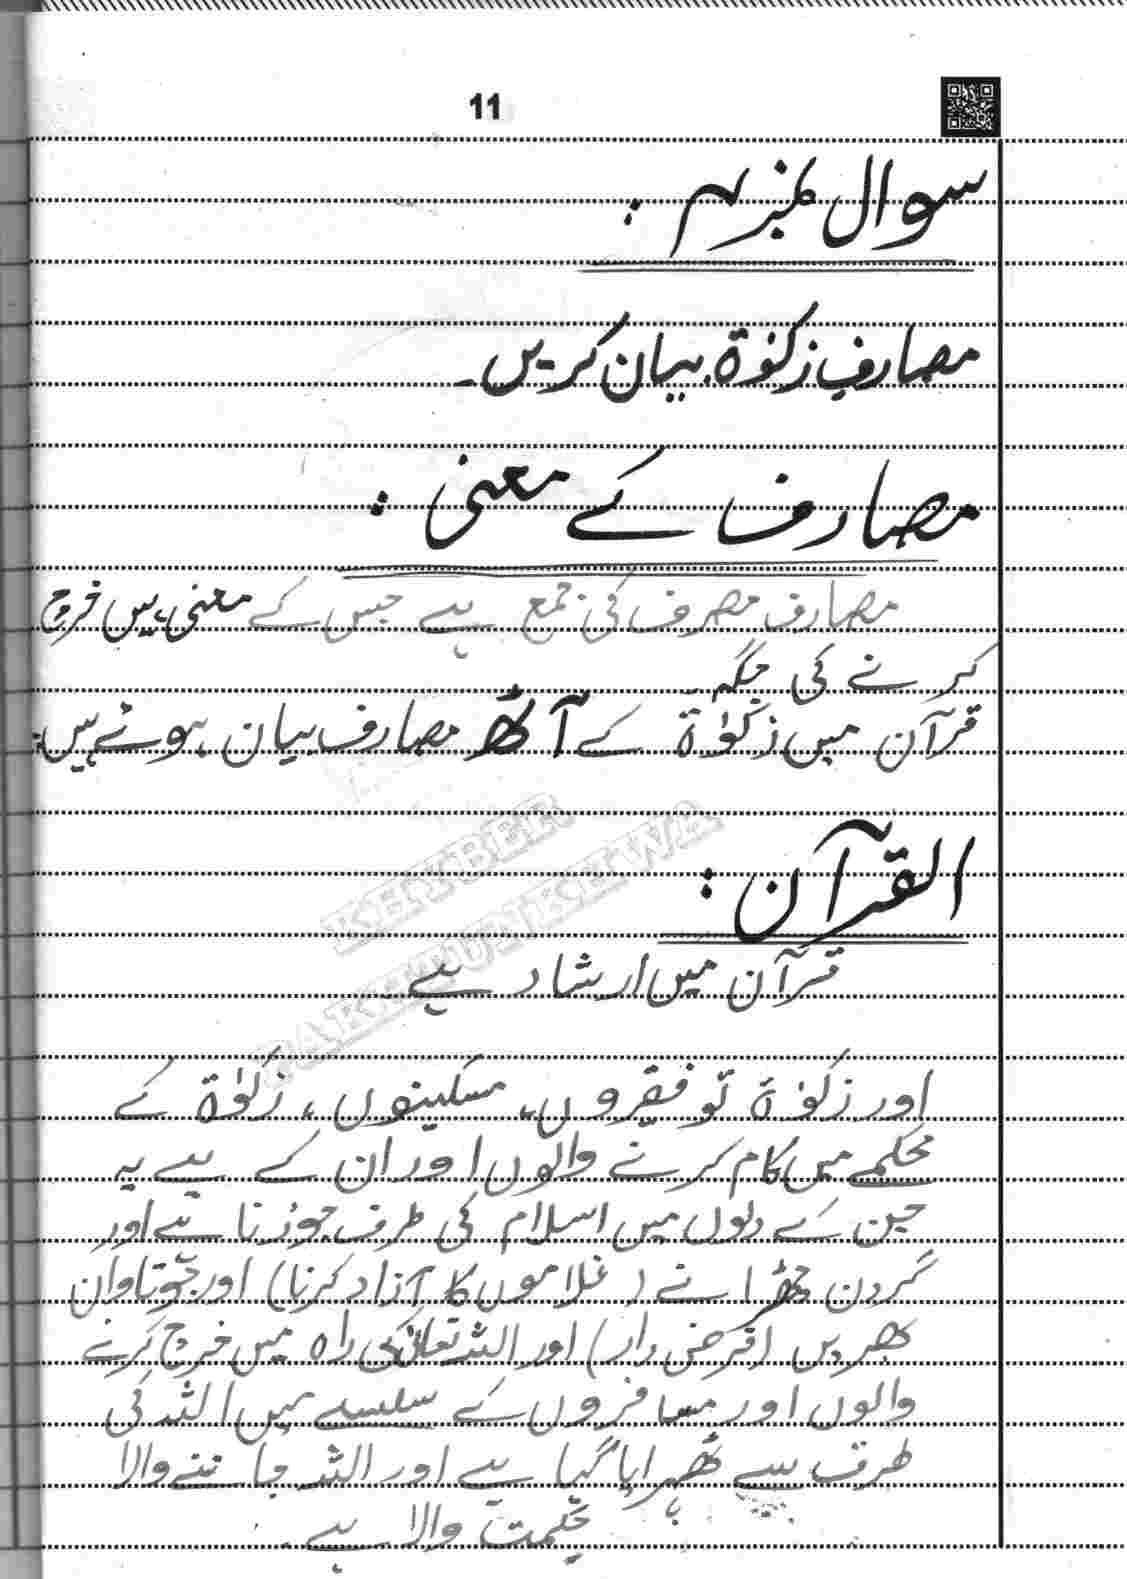 11
سوال نمبر ۴ :
مصارفِ زکوٰۃ بیان کریں۔
مصارف کے معنی :
مصارف مصرف کی جمع ہے جس کے معنی ہیں خرچ
کرنے کی جگہ
قرآن میں زکوٰۃ کے آٹھ مصارف بیان ہوئے ہیں۔
القرآن :
قرآن میں ارشاد ہے۔
KHYBER
PAKHTUNKHWA
اور زکوٰۃ تو فقیروں، مسکینوں، زکوٰۃ کے
محکمے میں کام کرنے والوں اور ان کے لیے یہ
جن کے دلوں میں اسلام کی طرف جوڑنا ہے اور
گردن چھڑانے (غلاموں کا آزاد کرنا) اور جو تاوان
بھریں (قرض دار) اور اللہ تعالیٰ کی راہ میں خرچ کرنے
والوں اور مسافروں کے سلسلے میں اللہ کی
طرف سے ٹھہرایا گیا ہے اور اللہ جاننے والا
حکمت والا ہے۔